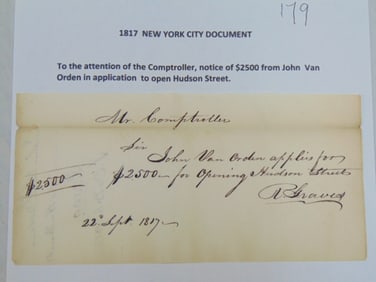 179
1817 NEW YORK CITY DOCUMENT
To the attention of the Comptroller, notice of $2500 from John Van
Orden in application to open Hudson Street.
Mr. Comptroller
Sir
John Van Orden applies for
$2500 $2500 for Opening Hudson Street
R Graves
22d Sept. 1817